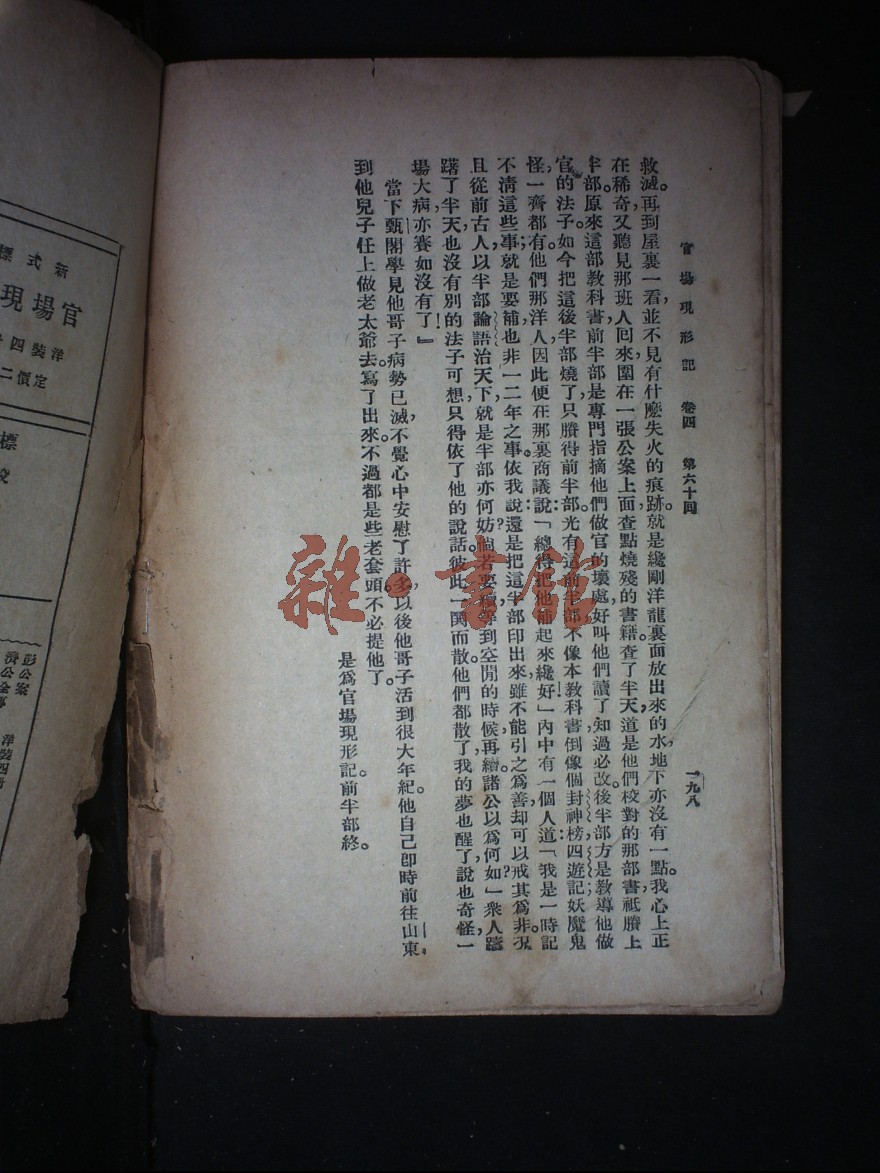 官場現形記 卷四 第六十回 一九八
救滅。再到屋裏一看，並不見有什麼失火的痕跡。就是纔剛洋龍裏面放出來的水，地下亦沒有一點。我心上正
在稀奇，又聽見那班人回來，圍在一張公案上面，查點燒殘的書籍。查了半天，道是他們校對的那部書，祇賸上
半部。原來這部教科書，前半部是專門指摘他們做官的壞處，好叫他們讀了知過必改；後半部方是教導他做
官的法子。如今把這後半部燒了，只賸得前半部。光有這前半部，不像本教科書，倒像個封神榜、四遊記，妖魔鬼
怪，一齊都有。他們那洋人因此便在那裏商議說：「總得把他補起來纔好。」內中有一個人道：「我是一時記
不清這些事，就是要補，也非一二年之事。依我說：還是把這半部印出來，雖不能引之爲善，却可以戒其爲非。況
且從前古人以半部論語治天下，就是半部亦何妨？倘若要續，等到空閒的時候再續。諸公以爲何如？」衆人躊
躇了半天，也沒有別的法子可想，只得依了他的說話，彼此一鬨而散。他們都散了，我的夢也醒了。說也奇怪，一
場大病，亦賽如沒有了！』
當下甄閣學見他哥子病勢已減，不覺心中安慰了許多。以後他哥子活到很大年紀。他自己即時前往山東，
到他兒子任上做老太爺去。寫了出來，不過都是些老套頭，不必提他了。
是爲官場現形記。前半部終。
雜·書館
新式標
官場現
洋裝四
定價二
標
彭公案
濟公全
洋裝四